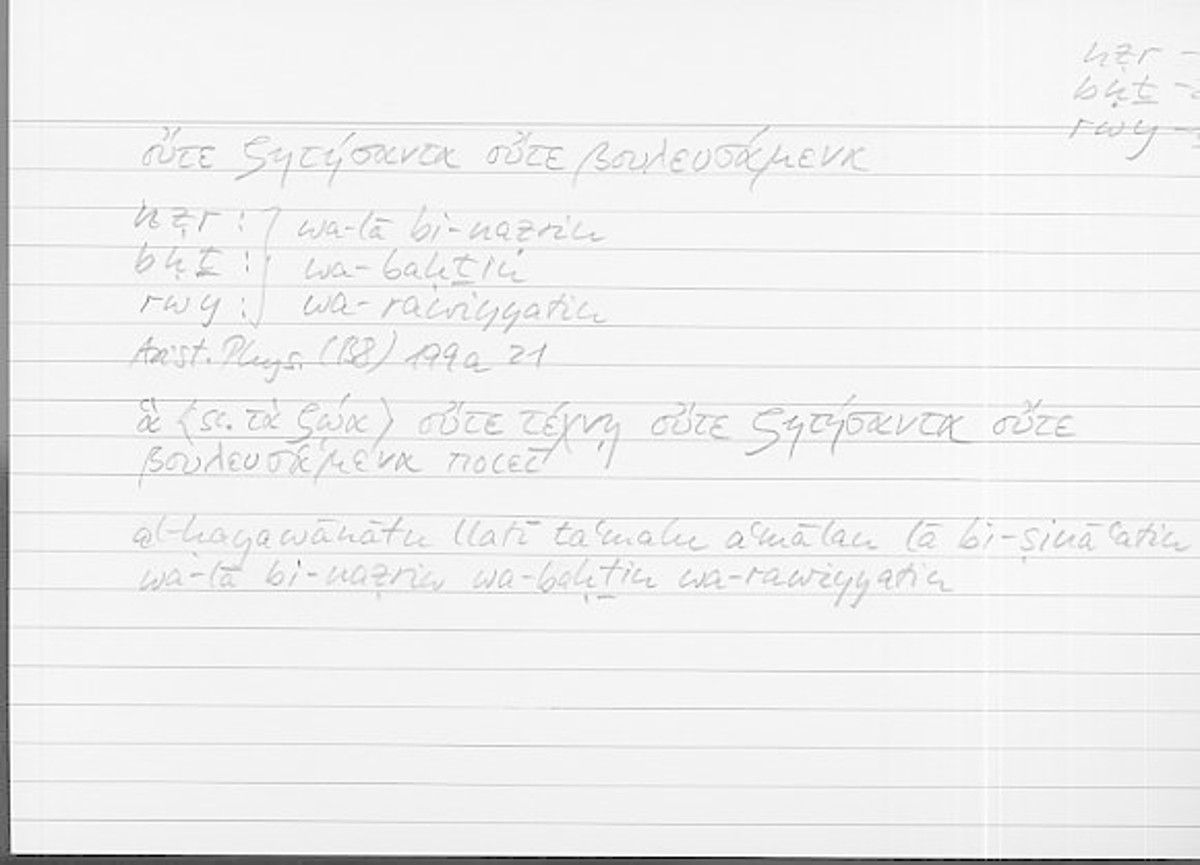 nẓr –
bḥṯ –
rwy –
οὔτε ζητήσαντα οὔτε βουλευσάμενα
nẓr : wa-lā bi-naẓrin
bḥṯ : wa-baḥṯin
rwy : wa-rawiyyatin
Arist. Phys. (B8) 199a 21
ἃ ⟨sc. τὰ ζῷα⟩ οὔτε τέχνῃ οὔτε ζητήσαντα οὔτε
βουλευσάμενα ποιεῖ
al-ḥayawānātu llatī taʿmalu aʿmālan lā bi-ṣināʿatin
wa-lā bi-naẓrin wa-baḥṯin wa-rawiyyatin